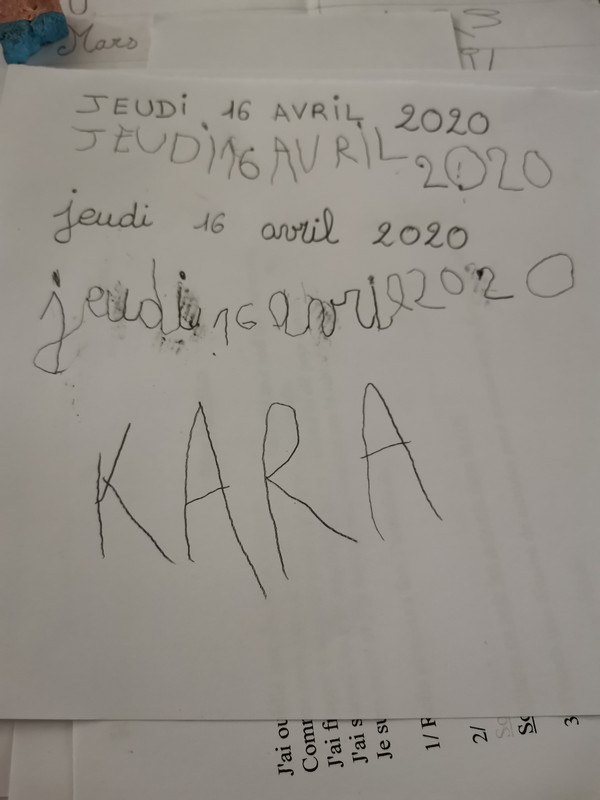 Mars
JEUDI 16 AVRIL 2020
JEUDI 16 AVRIL 2020
jeudi 16 avril 2020
jeudi 16 avril 2020
KARA
J'ai
J'ai
J'ai
Je
1/
2/
3